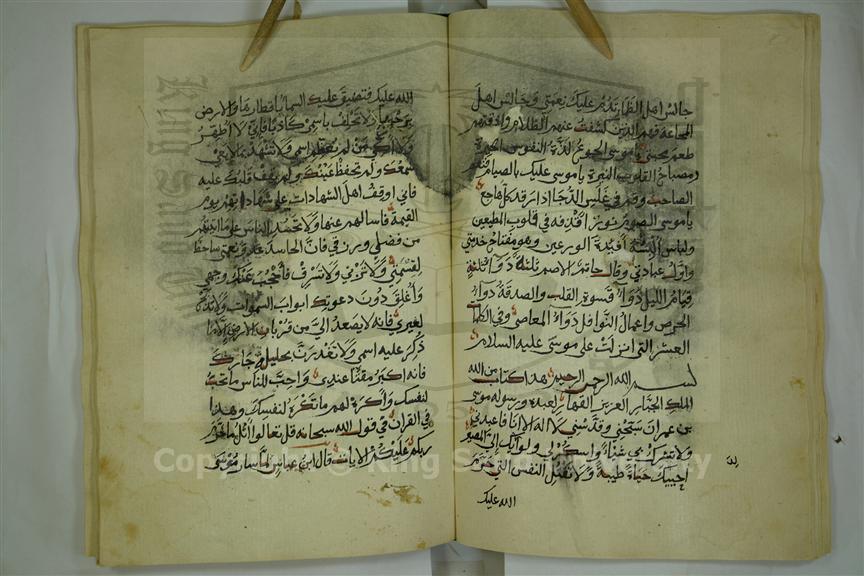 جالس اهل الظلم تدم عليك نعمتي وجالس اهل
المجاعة فهم الذين كشفت عنهم الظلام واذقتهم
طعم محبتي يا موسى الجوع لذة النفوس
ومصباح القلوب النيرة يا موسى عليك بالصيام فنعم
الصاحب وقم في غلس الدجا اذا رقد كل هاجع
يا موسى الصوم نور اقذفه في قلوب المطيعين
ولباس افيدة الورعين وهو مفتاح خدمتي
واول عبادتي وقال حاتم الاصم ثلثة دوا ثلثة
قيام الليل دوا قسوة القلب والصدقة دوا
الحرص واعمال النوافل دوا المعاصي وفي الكلمات
العشر التي انزلت على موسى عليه السلام
بسم الله الرحمن الرحيم هذا كتاب من الله
الملك الجبار العزيز القهار لعبده ورسوله موسى
بن عمران سبحني وقدسني لا اله الا انا فاعبدني
ولا تشرك بي شيئا واشكر لي ولوالديك الي المصير
احييك حياة طيبة ولا تقتل النفس التي حرم
الله عليك
الله عليك فتضيق عليك السما باقطارها والارض
برحبها ولا تحلف باسمي كاذبا فاني لا اطهر
ولا ازكي من لم يعظم اسمي ولا تشهد بما لا يعي
سمعك ولم تحفظ عينك ولم يقف قلبك عليه
فاني اوقف اهل الشهادات على شهاداتهم يوم
القيمة فاسالهم عنها ولا تحسد الناس على ما اتيتهم
من فضلي ورزقي فان الحاسد عدو نعمتي ساخط
لقسمتي ولا تزني ولا تسرق فاحجب عنك وجهي
واغلق دون دعوتك ابواب السموات ولا تذبح
لغيري فانه لا يصعد الي من قربان الارض الا ما
ذكر عليه اسمي ولا تغدرن بحليل جارك
فانه اكبر مقتا عندي واحب للناس ما تحب
لنفسك واكره لهم ما تكره لنفسك وهذا
في القران في قول الله سبحانه قل تعالوا اتل ما حرم
ربكم عليكم الايات قال ابن عباس لما سار موسى